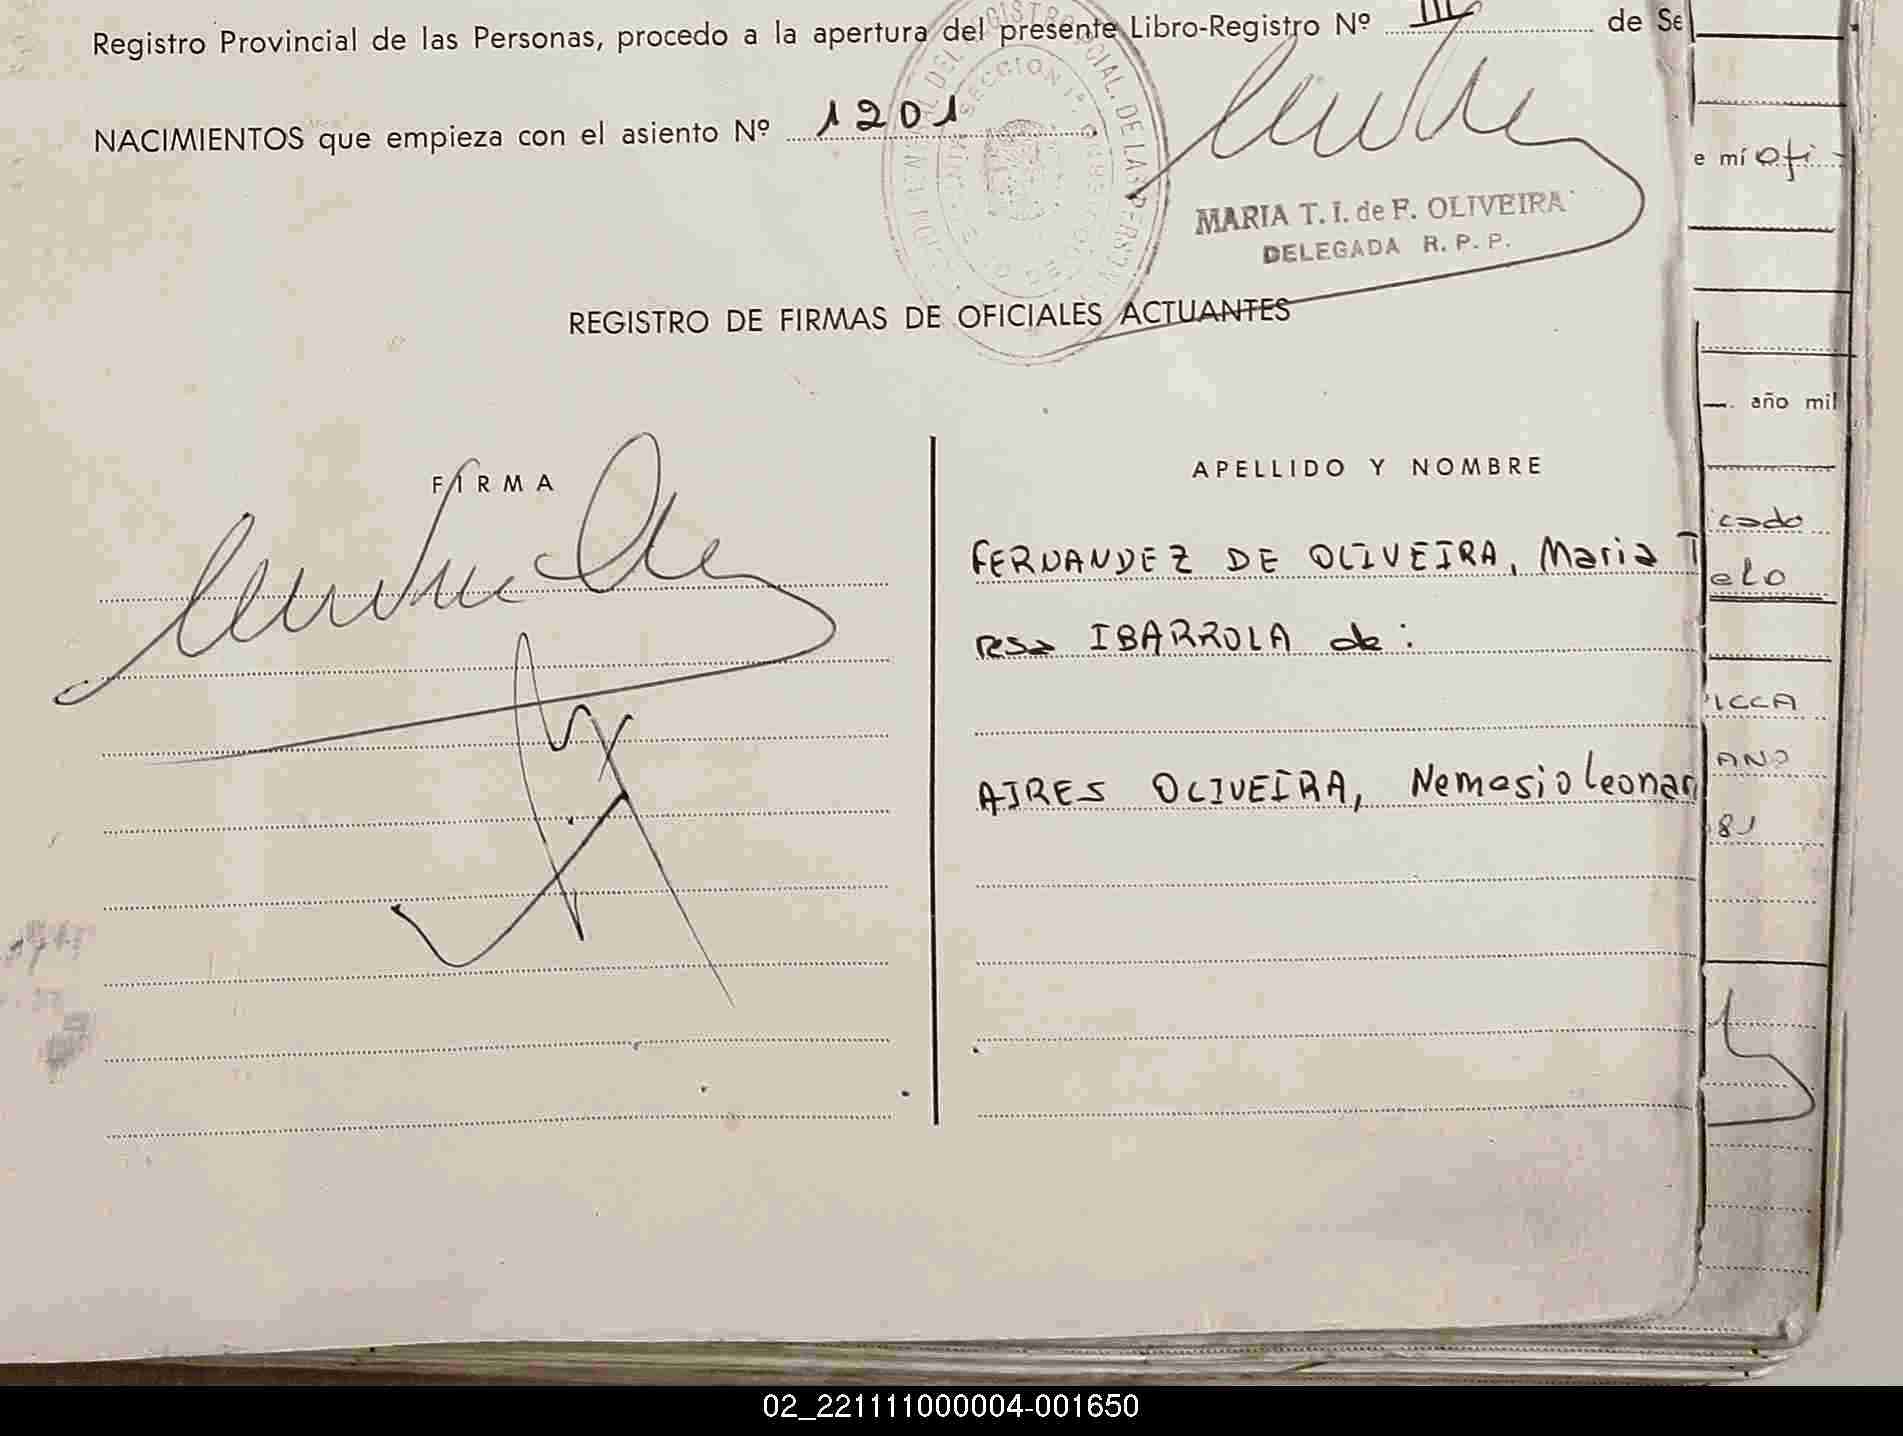 Registro Provincial de las Personas, procedo a la apertura del presente Libro-Registro Nº III de Se
NACIMIENTOS que empieza con el asiento Nº 1201
MARIA T. I. de F. OLIVEIRA
DELEGADA R. P. P.
REGISTRO DE FIRMAS DE OFICIALES ACTUANTES
FIRMA
APELLIDO Y NOMBRE
FERNANDEZ DE OLIVEIRA, Maria T
resa IBARROLA de:
AIRES OLIVEIRA, Nemesio Leonar
e mí Ofi
año mil
cado
elo
ICCA
ANO
81
02_221111000004-001650